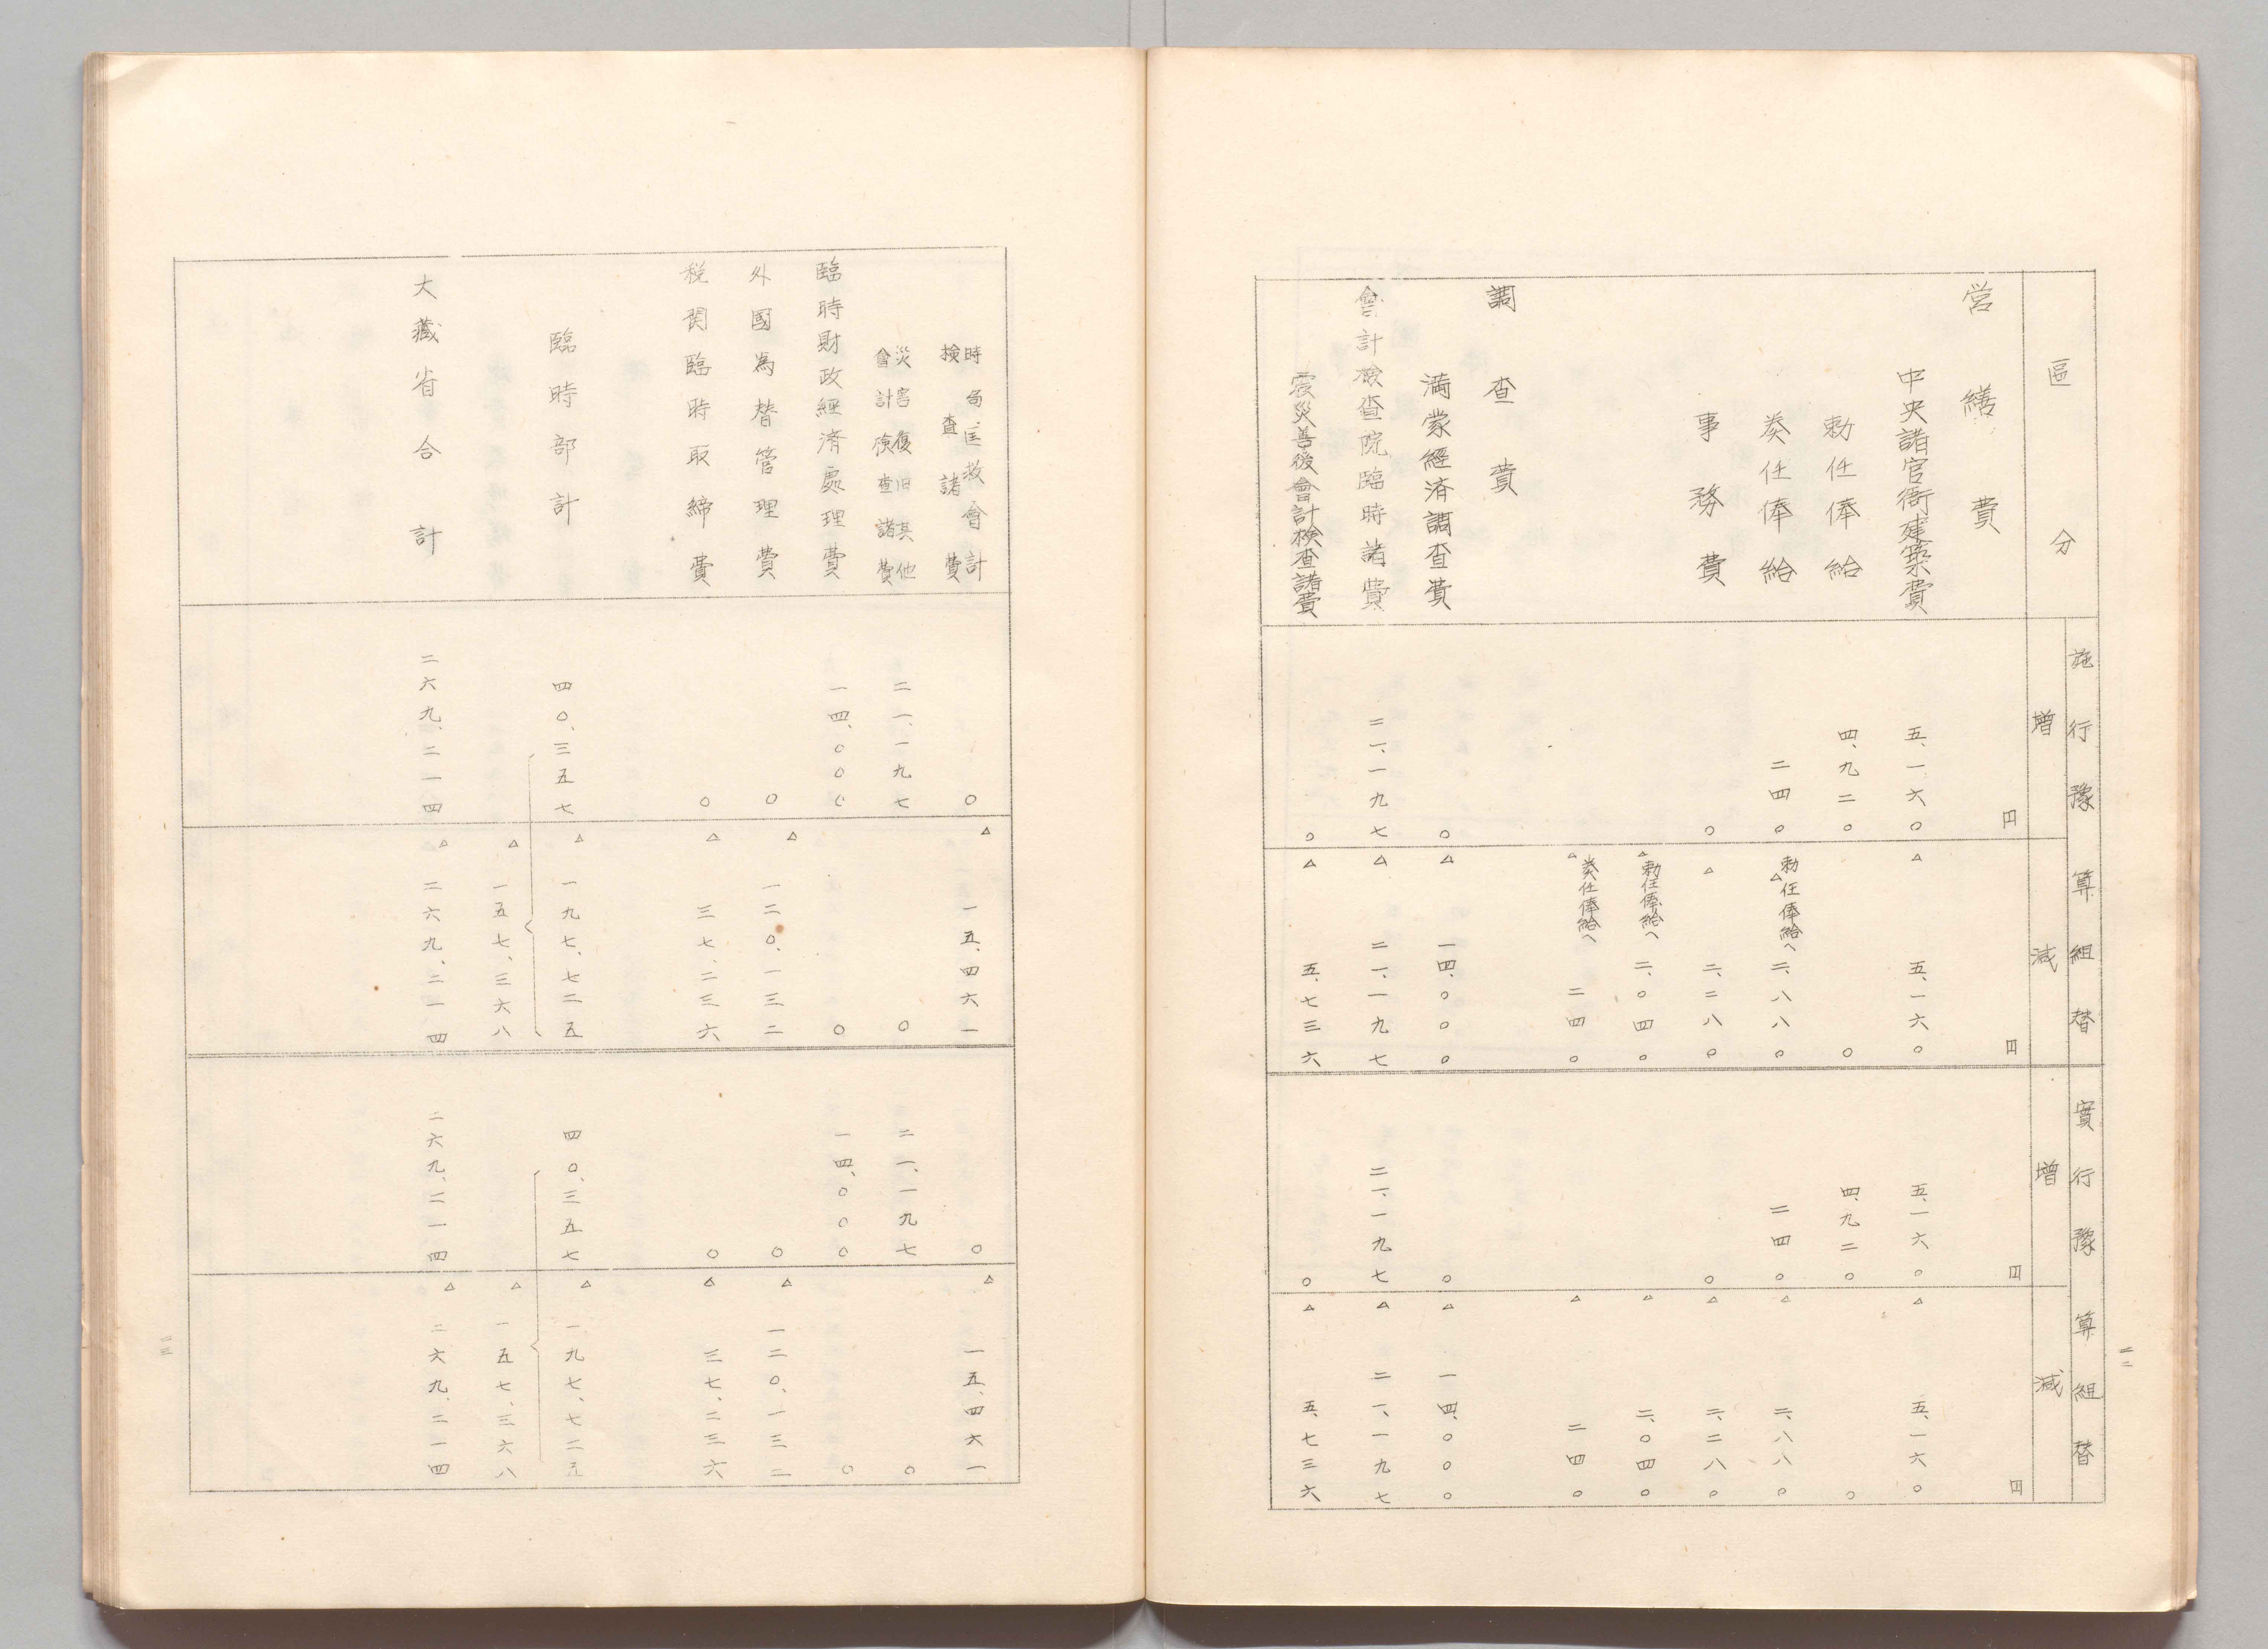 區分
施行豫算組替
實行豫算組替
増
減
増
減
円 円 円 円
営繕費
中央諸官衙建築費 五、一六〇 △ 五、一六〇 五、一六〇 △ 五、一六〇
勅任俸給 四、九二〇 〇 四、九二〇 〇
奏任俸給 二四〇 勅任俸給へ △ 二、八八〇 二四〇 △ 二、八八〇
事務費 〇 △ 二、二八〇 〇 △ 二、二八〇
△ 勅任俸給へ 二、〇四〇 △ 二、〇四〇
△ 奏任俸給へ 二四〇 △ 二四〇
調査費
満蒙經済調査費 〇 △ 一四、〇〇〇 〇 △ 一四、〇〇〇
會計検査院臨時諸費 二一、一九七 △ 二一、一九七 二一、一九七 △ 二一、一九七
震災善後會計検査諸費 〇 △ 五、七三六 〇 △ 五、七三六
二二
時局匡救會計検査諸費 〇 △ 一五、四六一 〇 △ 一五、四六一
災害復旧其他會計検査諸費 二一、一九七 〇 二一、一九七 〇
臨時財政經済處理費 一四、〇〇〇 〇 一四、〇〇〇 〇
外國為替管理費 〇 △ 一二〇、一三二 〇 △ 一二〇、一三二
税関臨時取締費 〇 △ 三七、二三六 〇 △ 三七、二三六
臨時部計 四〇、三五七 △ 一九七、七二五 四〇、三五七 △ 一九七、七二五
△ 一五七、三六八 △ 一五七、三六八
大藏省合計 二六九、二一四 △ 二六九、二一四 二六九、二一四 △ 二六九、二一四
二三